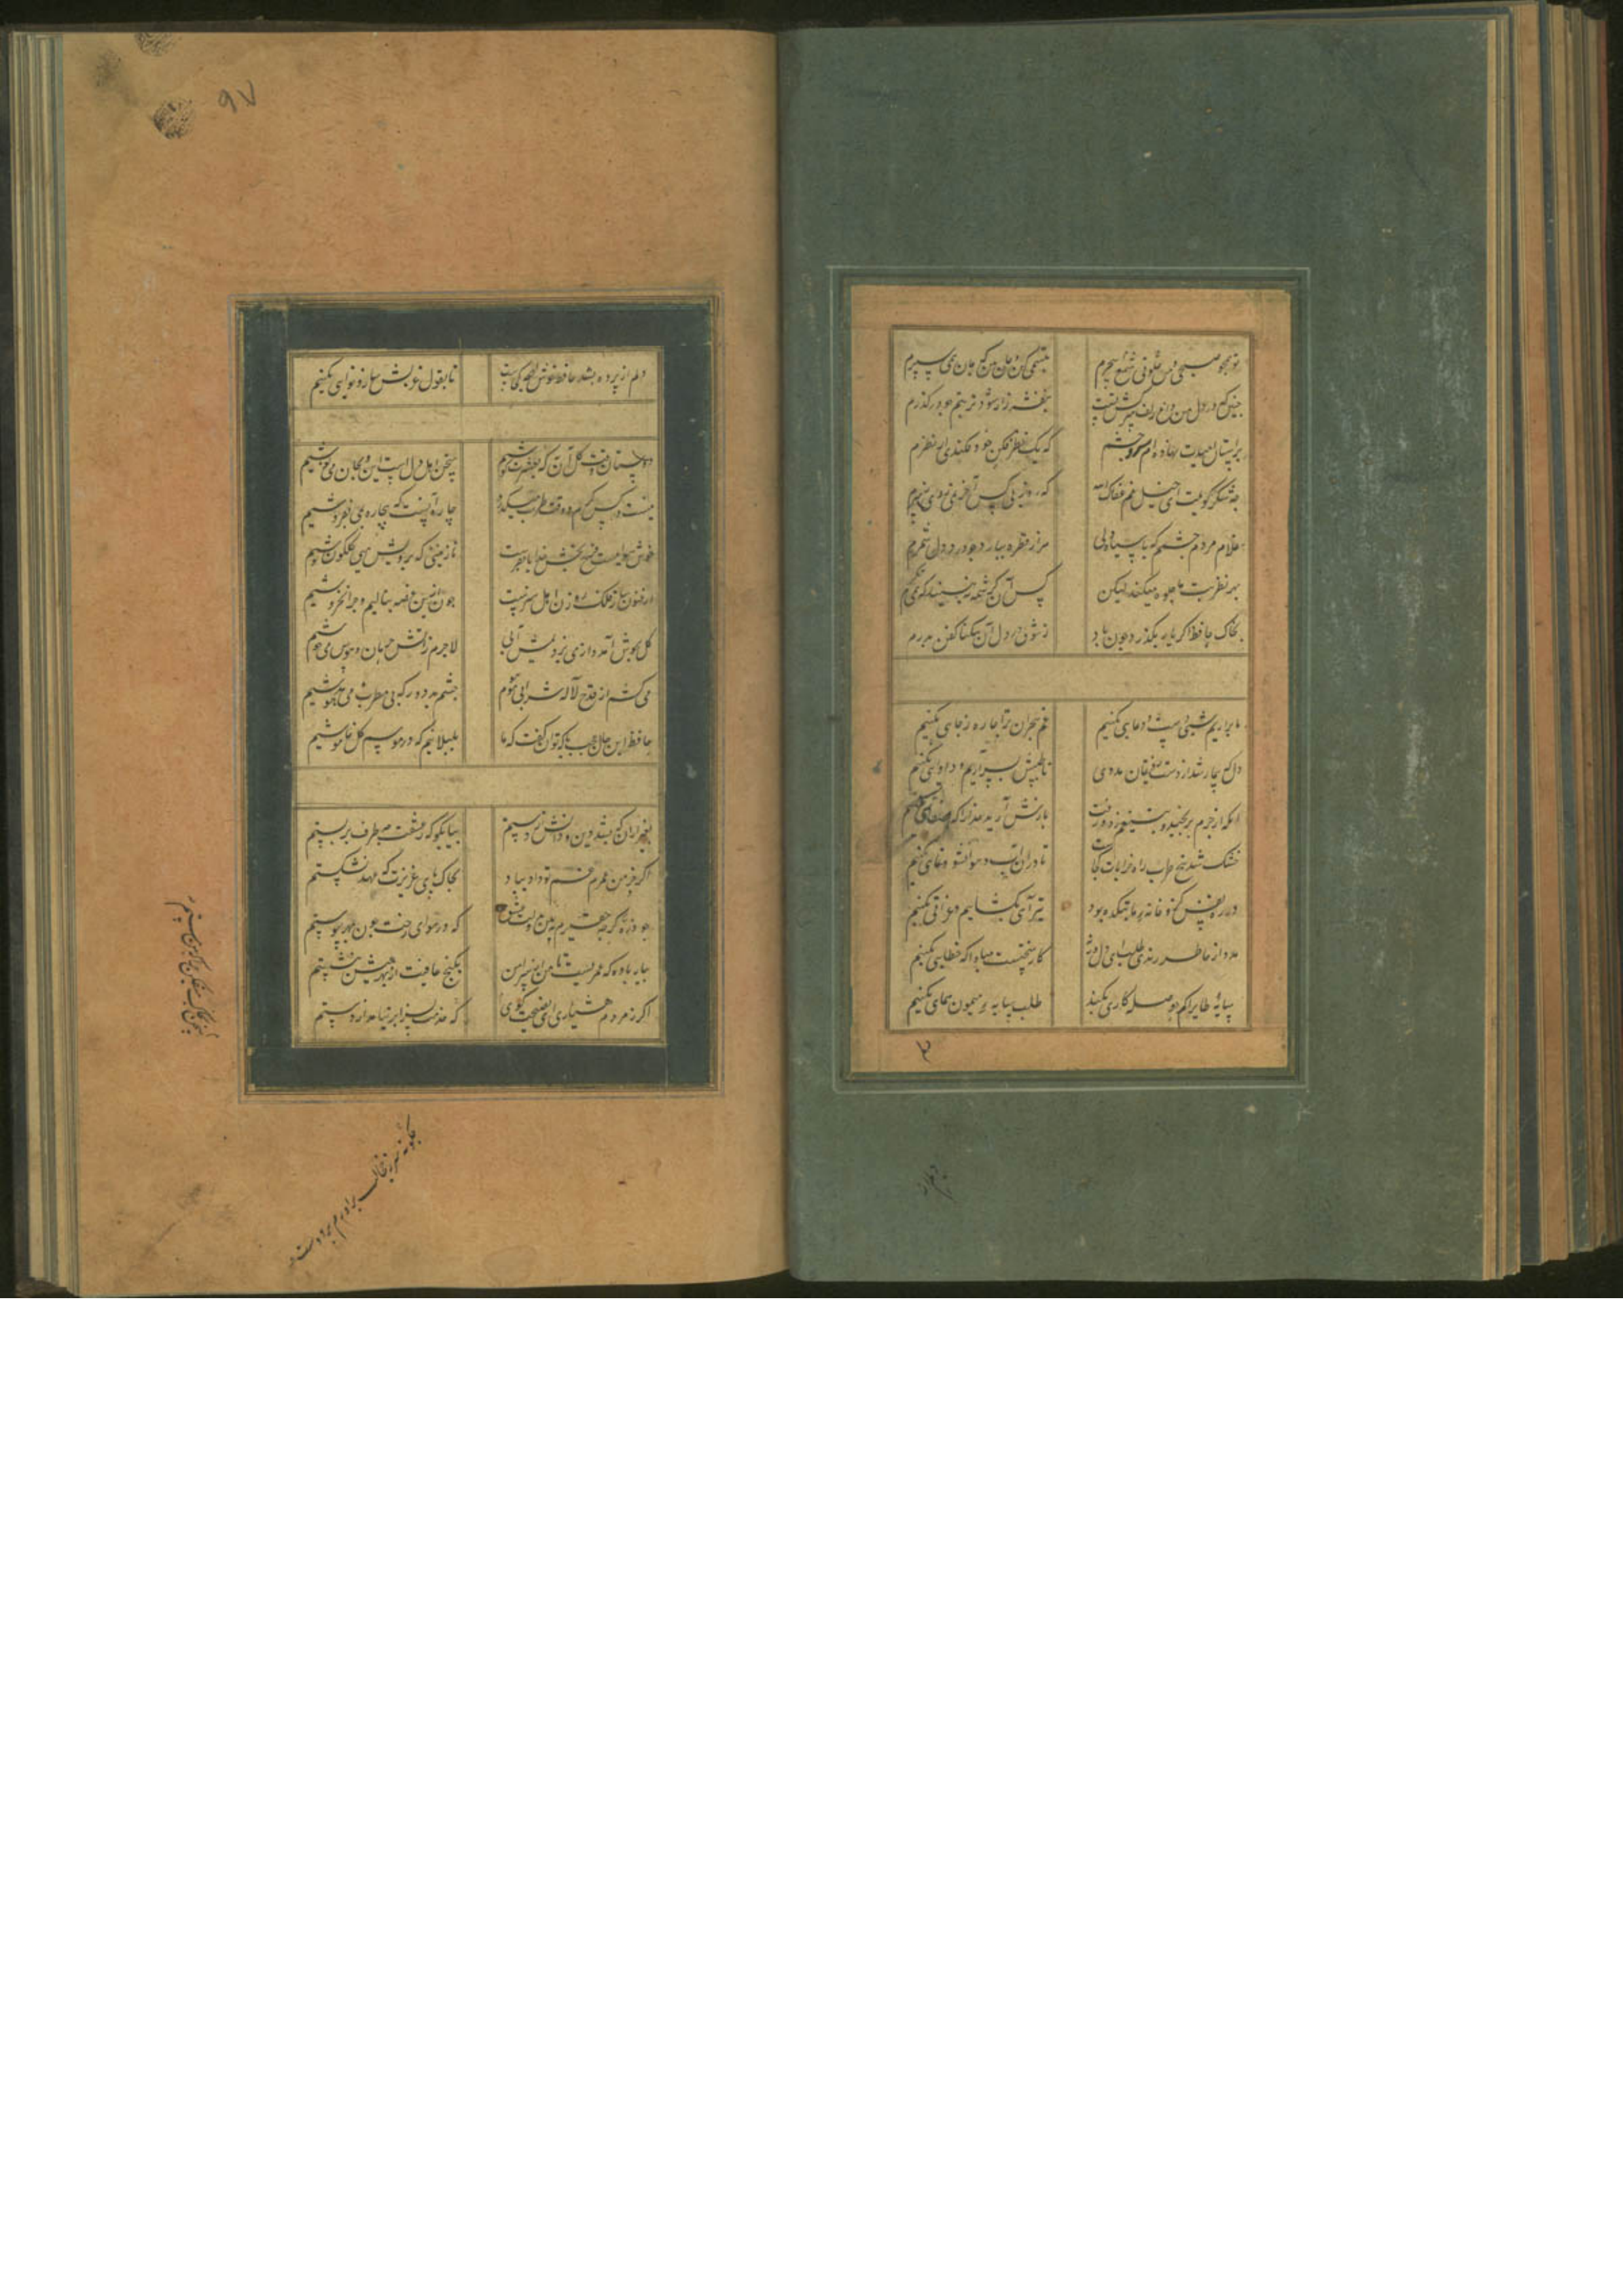 تو همچو صبحی و من شمع خلوت سحرم
تبسمی کن و جان بین که جان همی سپرم
چنین که در دل من داغ زلف سرکش تست
بنفشه زار شود تربتم چو درگذرم
بر آستان امیدت نهاده ام در چشم
که یک نظر فکنی خود فکندی از نظرم
چه شکر گویمت ای خیل غم عفاک الله
که روز بی کسی آخر نمی روی ز سرم
غلام مردم چشمم که با سیاه دلی
هزار قطره ببارد چو درد دل شمرم
بهر نظر بت ما جلوه میکند لیکن
کس آن کرشمه نبیند که من همی نگرم
بخاک حافظ اگر یار بگذرد چون باد
ز شوق در دل آن تنگنا کفن بدرم
ما برآریم شبی دست و دعایی بکنیم
غم هجران ترا چاره ز جایی بکنیم
دل بیمار شد از دست رفیقان مددی
تا طبیبش بسر آریم و دوایی بکنیم
آنکه بی جرم برنجید و به تیغم زد و رفت
بازش آرید خدا را که صفایی بکنیم
خشک شد بیخ طرب راه خرابات کجاست
تا در آن آب و هوا نشو و نمایی بکنیم
در ره نفس کزو خانه ما بتکده بود
تیر آهی بگشاییم و غزایی بکنیم
مدد از خاطر رندان طلب ای دل ورنه
کار سختست مبادا که خطایی بکنیم
سایه طایر کم حوصله کاری نکند
طلب سایه میمون همایی بکنیم
دلم از پرده بشد حافظ خوش لهجه کجاست
تا بقول و غزلش ساز و نوایی بکنیم
دوستان وقت گل آن به که بعشرت کوشیم
سخن اهل دلست این و بجان می نوشیم
نیست در کس کرم و وقت طرب میگذرد
چاره آنست که سجاده بمی بفروشیم
خوش هواییست فرح بخش خدایا بفرست
نازنینی که برویش می گلگون نوشیم
ارغنون ساز فلک رهزن اهل هنرست
چون ازین غصه ننالیم و چرا نخروشیم
گل بجوش آمد و از می نزدیمش آبی
لاجرم ز آتش حرمان و هوس می جوشیم
می کشیم از قدح لاله شرابی موهوم
چشم بد دور که بی مطرب و می مدهوشیم
حافظ این حال عجب با که توان گفت که ما
بلبلانیم که در موسم گل خاموشیم
بغیر از آن که بشد دین و دانش از دستم
بیا بگو که ز عشقت چه طرف بر بستم
اگر چه خرمن عمرم غم تو داد بباد
بخاک پای عزیزت که عهد نشکستم
چو ذره گر چه حقیرم ببین بدولت عشق
که در هوای رخت چون بمهر پیوستم
بیار باده که عمریست تا من از سر امن
بکنج عافیت از بهر عیش ننشستم
اگر ز مردم هشیاری ای نصیحت گوی
سخن بخاک میفکن چرا که من مستم
چگونه سر ز خجالت برآورم بر دوست
که خدمتی بسزا بر نیامد از دستم
دلم از
۹۷